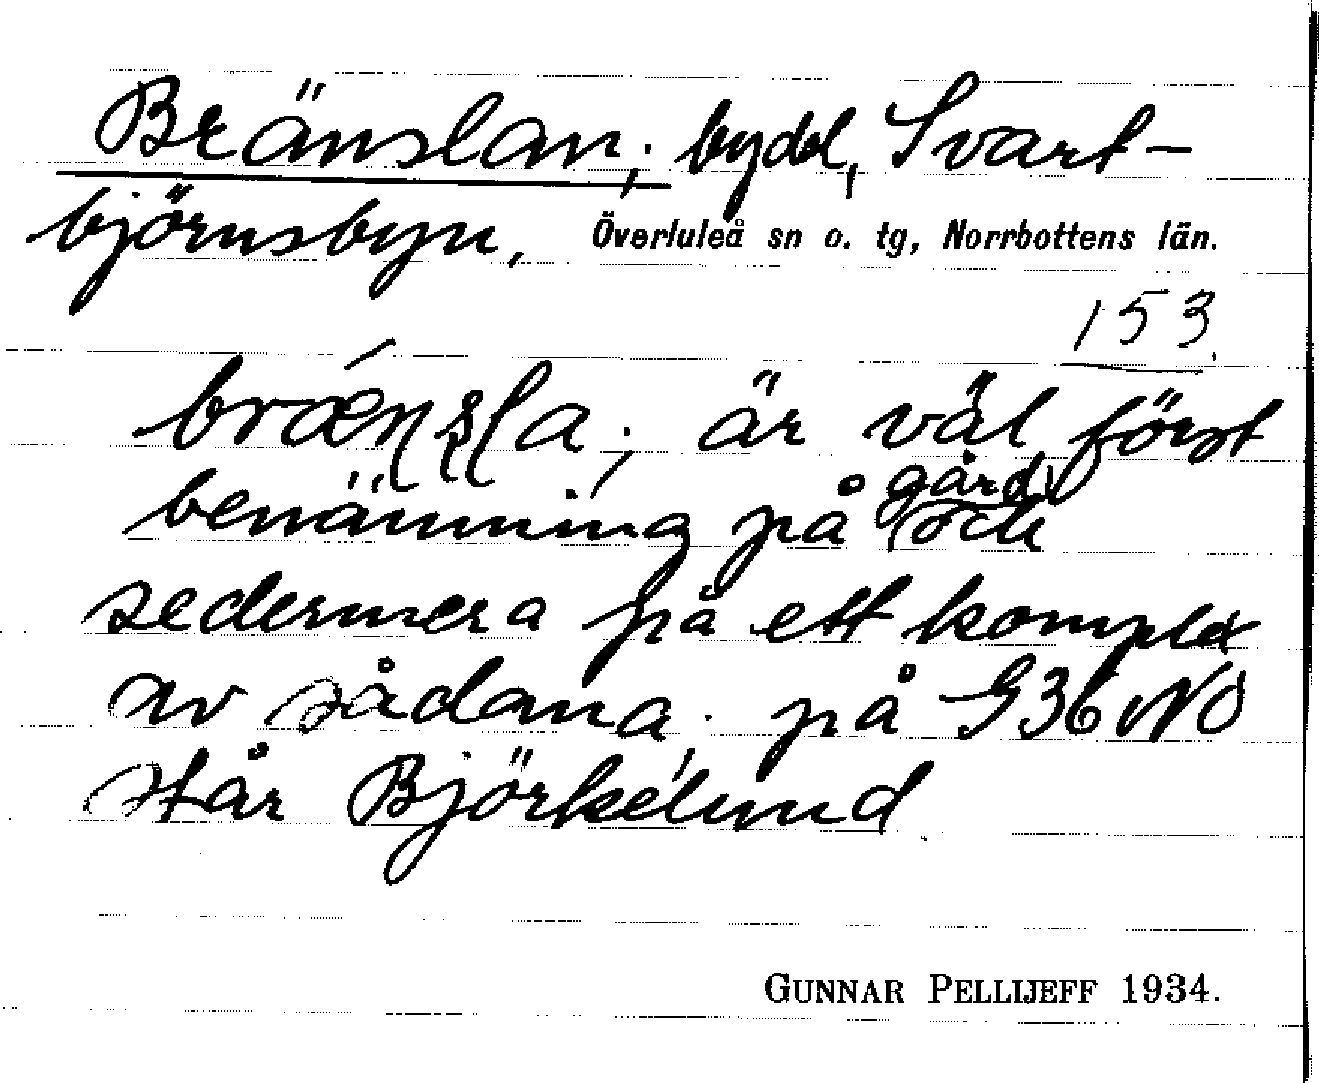 Bränslan; bydel, Svart-
björnsbyn, Överluleå sn o. tg, Norrbottens län.
153
brǽnsla; är väl först
benämning på gård och
sedermera på ett komplex
av sådana. på G36NO
står Björkelund
GUNNAR PELLIJEFF 1934.